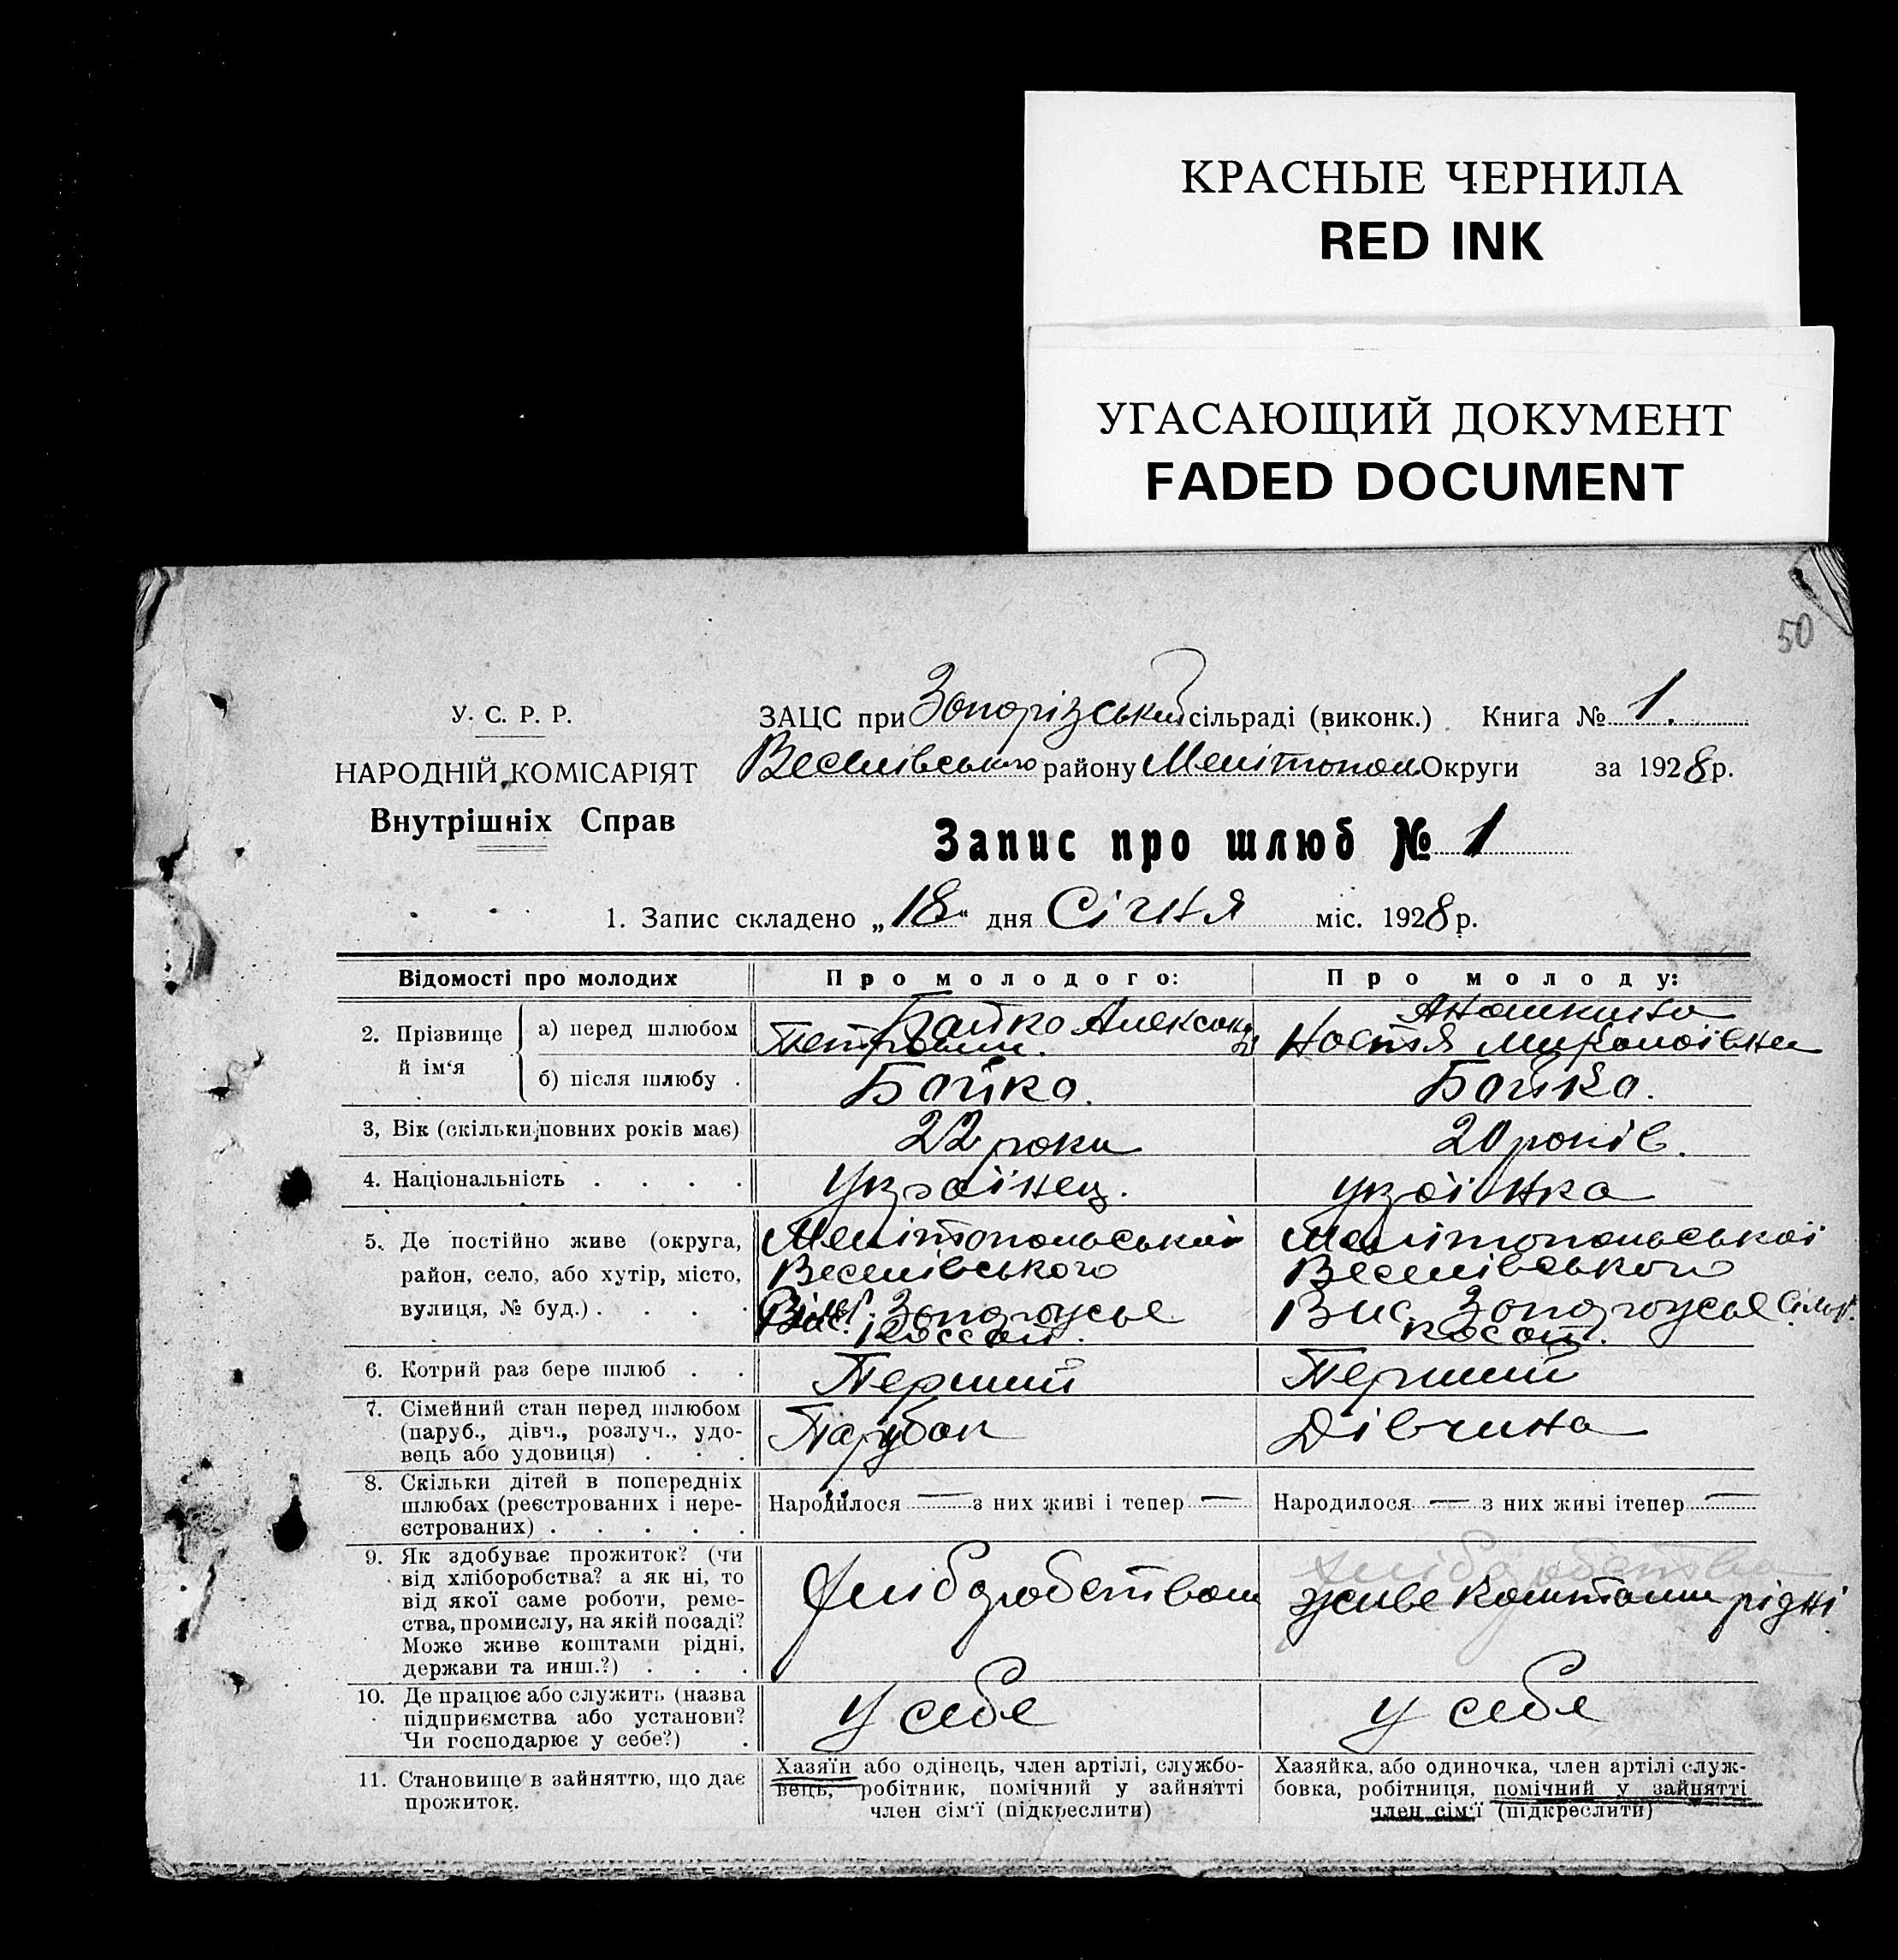 КРАСНЫЕ ЧЕРНИЛА
RED INK
УГАСАЮЩИЙ ДОКУМЕНТ
FADED DOCUMENT
50
У. С. Р. Р.
НАРОДНІЙ КОМІСАРІЯТ
Внутрішніх Справ
ЗАЦС при Запорізський сільраді (виконк.) Книга № 1.
Веселівського району Мелітопол Округи за 1928 р.
Запис про шлюб № 1
1. Запис складено „18“ дня Січня міс. 1928 р.
Відомості про молодих
Про молодого:
Про молоду:
2. Прізвище й ім‘я
а) перед шлюбом
Байко Александр
Петрович.
Настя
б) після шлюбу .
Байко.
Байко.
3, Вік (скільки повних років має)
22 роки
20 років.
4. Національність . . . .
Українец.
Украінка
5. Де постійно живе (округа,
район, село, або хутір, місто,
вулиця, № буд.) . . . .
Мелітопольськой
Веселівського
Вис. Запорожье
Мелітопольськоі
Веселівського
Вис. Запорожье Сільр.
6. Котрий раз бере шлюб . .
Перший
Перший
7. Сімейний стан перед шлюбом
(паруб., дівч., розлуч., удо-
вець або удовиця) . . .
Парубок
Дівчина
8. Скільки дітей в попередніх
шлюбах (реєстрованих і нере-
єстрованих) . . . . .
Народилося — з них живі і тепер —
Народилося — з них живі ітепер —
9. Як здобуває прожиток? (чи
від хліборобства? а як ні, то
від якої саме роботи, реме-
ства, промислу, на якій посаді?
Може живе коштами рідні,
держави та инш.?) . . .
Хліборобством
хліборобством
живе коштами рідні
10. Де працює або служить (назва
підприємства або установи?
Чи господарює у себе?) .
У себе
У себе
11. Становище в зайняттю, що дає
прожиток.
Хазяїн або одінець, член артілі, службо-
вець, робітник, помічний у зайнятті
член сім‘ї (підкреслити)
Хазяйка, або одиночка, член артілі служ-
бовка, робітниця, помічний у зайнятті
член сім‘ї (підкреслити)